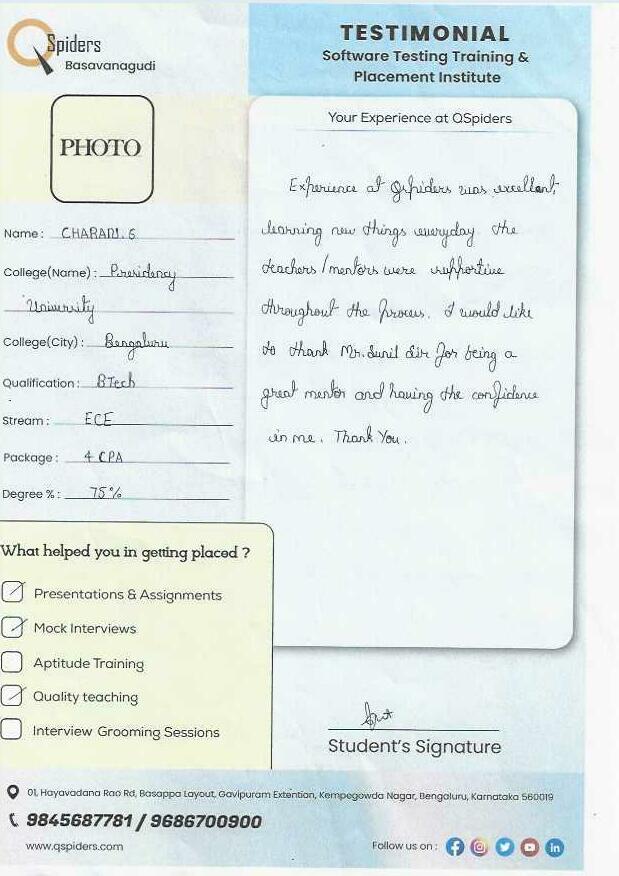 QSpiders
Basavanagudi
TESTIMONIAL
Software Testing Training &
Placement Institute
PHOTO
Name : CHARAN.G
College(Name) : Presidency
University
College(City) : Bengaluru
Qualification : BTech
Stream : ECE
Package : 4 CPA
Degree % : 75%
Your Experience at QSpiders
Experience at Qspiders was excellent,
learning new things everyday. the
teachers/mentors were supportive
throughout the process. I would like
to thank Mr. Sunil Sir for being a
great mentor and having the confidence
in me. Thank You.
What helped you in getting placed ?
Presentations & Assignments
Mock Interviews
Aptitude Training
Quality teaching
Interview Grooming Sessions
Student's Signature
01, Hayavadana Rao Rd, Basappa Layout, Gavipuram Extention, Kempegowda Nagar, Bengaluru, Karnataka 560019
9845687781 / 9686700900
www.qspiders.com
Follow us on :